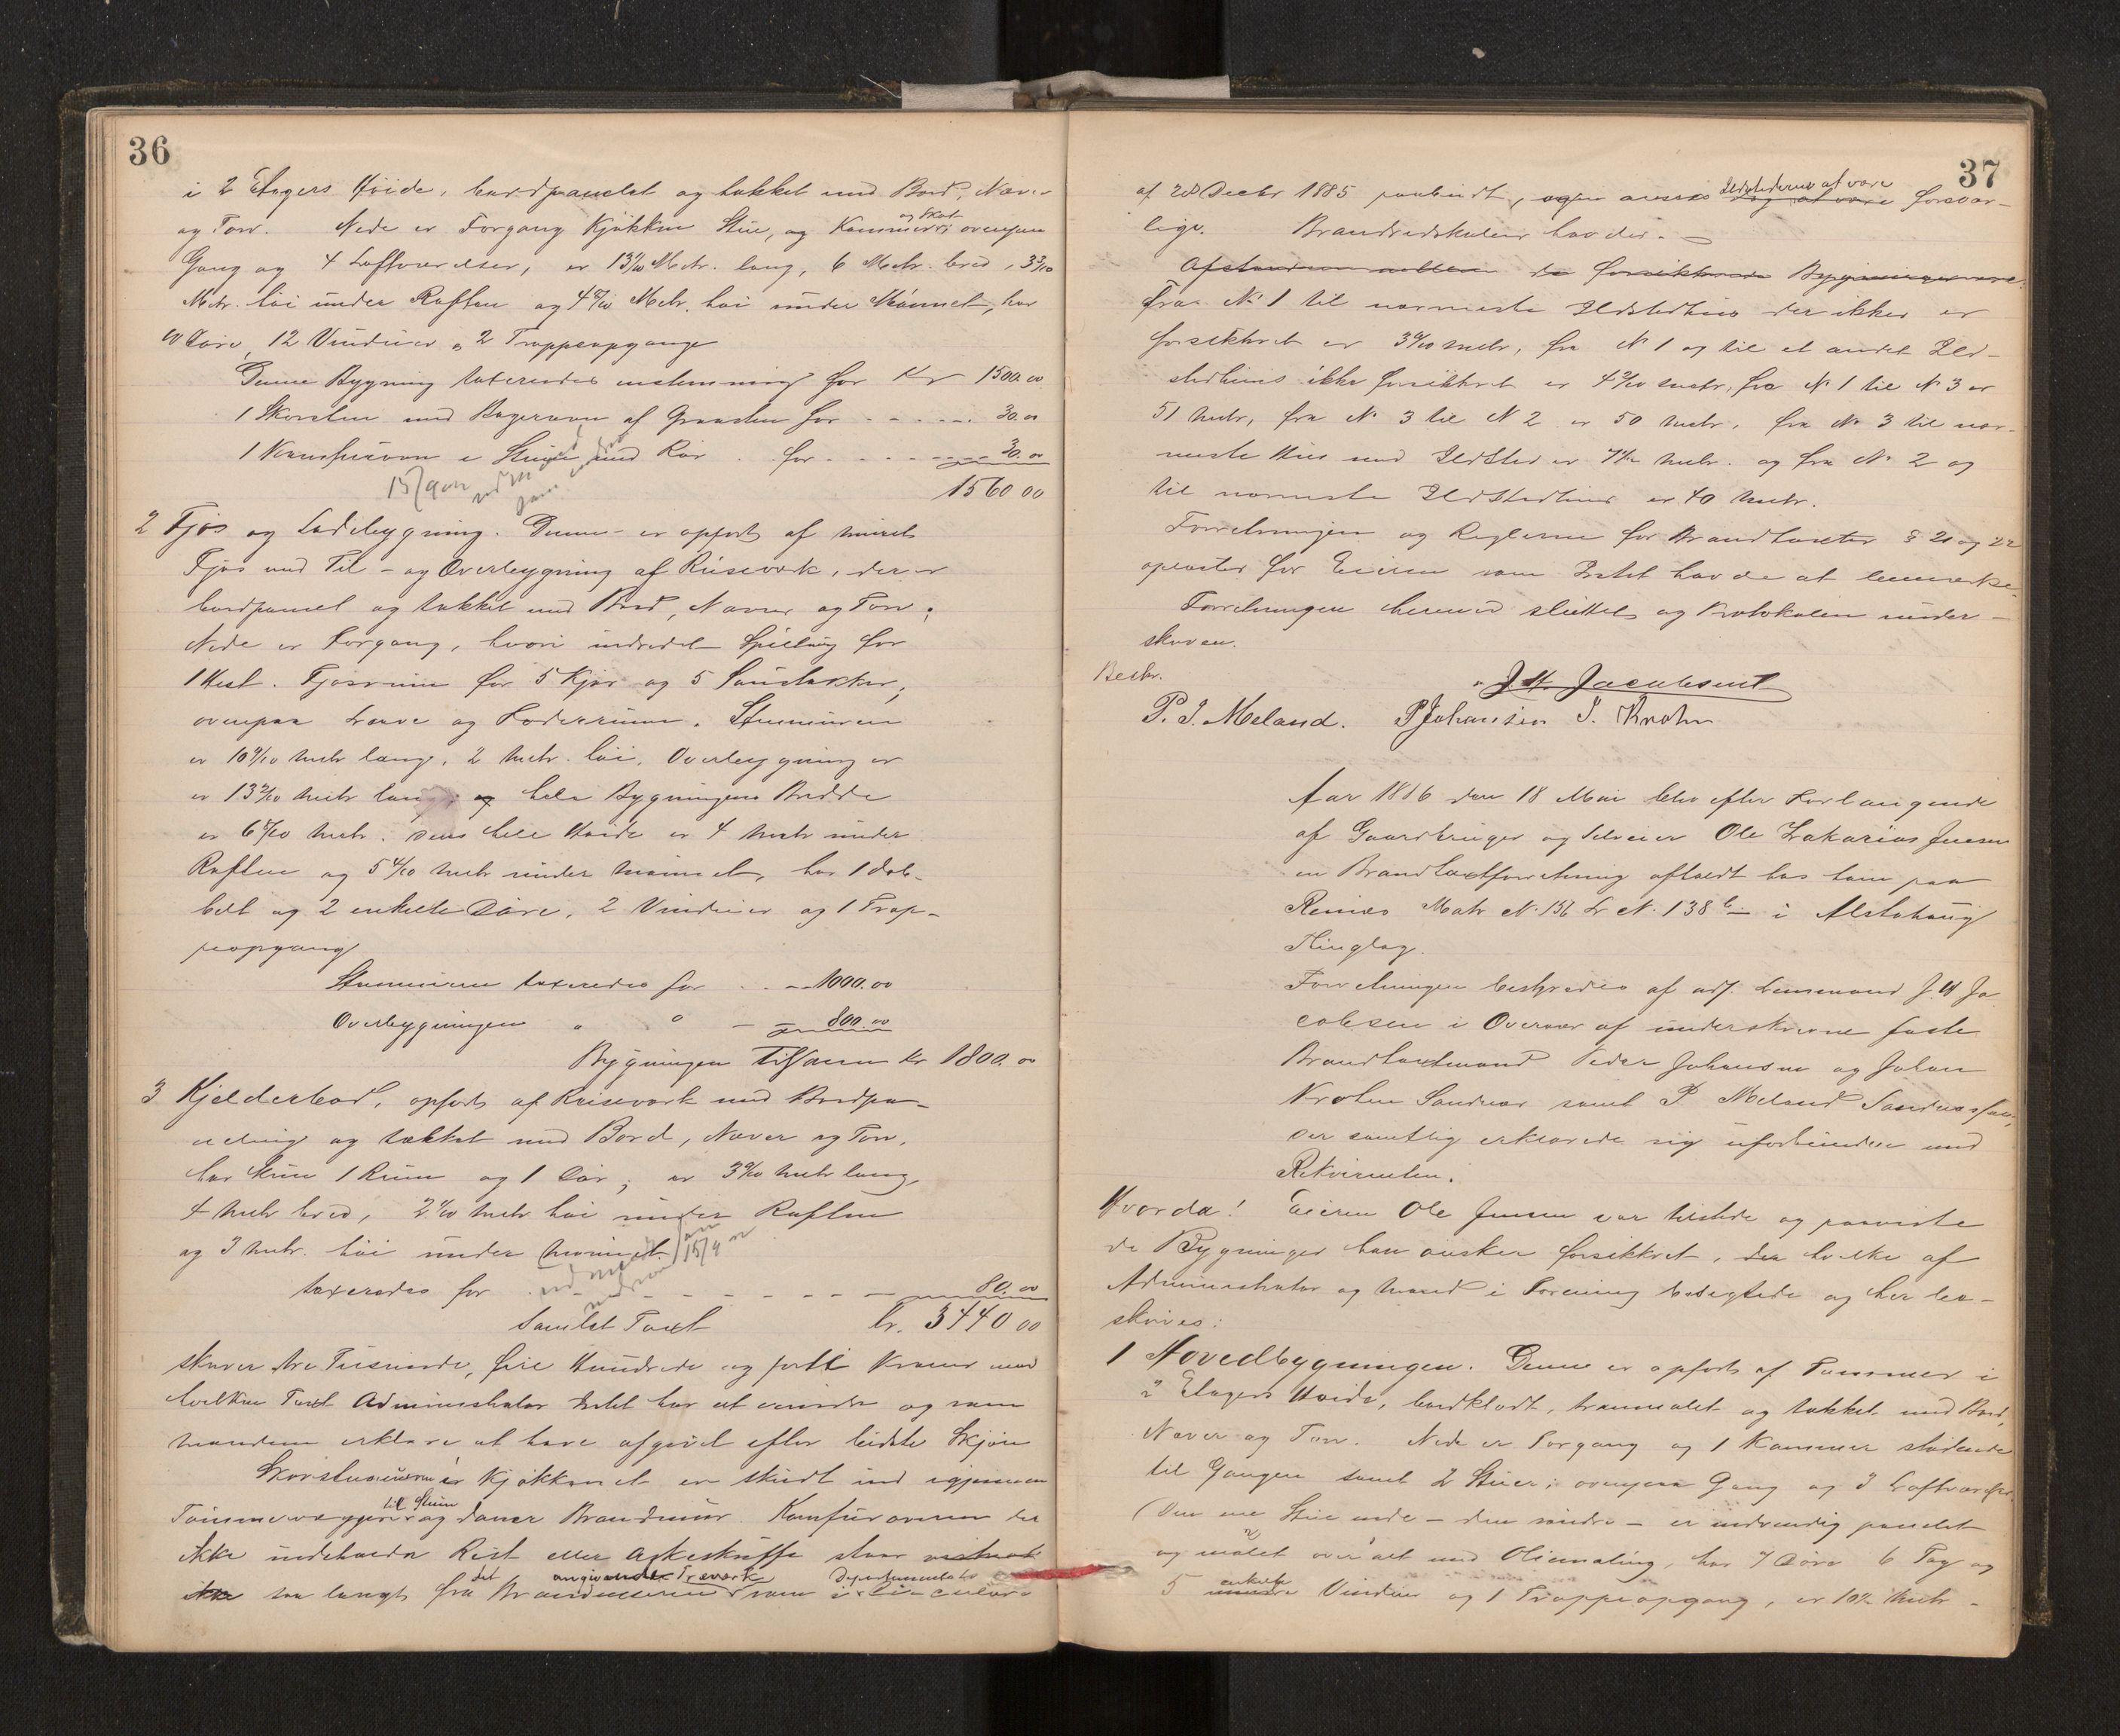 36
i 2 Etagers Høide, bordpanelet og tækket med Bord, Næver
og Torv. Nede er Forgang Kjøkken Stue, og Kammers og Skot ovenpaa
Gang og 4 Loftværelser, er 13 Metr. lang, 6 Metr. bred, 3 3/10
Metr. høi under Raften og 4 Metr. høi under Mønnet, har
10 Døre, 12 Vinduer, 2 Trappeopgange
Denne Bygning taxeredes enstemmig for Kr 1500.00
1 Skorsten med Bagerovn af Graasten for - - - - - 30.00
1 Komfurovn i Stuen med Rør for - - - - - 30.00
1560 00
2 Fjøs og Ladebygning. Denne er opført af muret
Fjøs med Til- og Overbygning af Reisværk, der er
bordpanel og tækket med Bord, Næver og Torv;
Nede er Forgang, hvori indredet Spiltoug for
1 Hest. Fjøsrum for 5 Kjør og 5 Saustakker;
ovenpaa Laave og Foderrum. Stenmuren
er 10 Metr lang, 2 Metr. høi. Overbygning er
er 13 2/10 Metr lang; og hele Bygningens Bredde
er 6 Metr. dens hele Høide er 4 Metr under
Raften og 5 4/10 Metr under Mønnet, har 1 dob-
belt og 2 enkelte Døre, 2 Vinduer og 1 Trap-
peopgang
Stenmuren taxeredes for - - - 1000.00
Overbygningen " " - 800.00
Bygningen Tilsam Kr 1800.00
3 Kjelderbod, opført af Reisværk med Bordpa-
neling og tækket med Bord, Næver og Torv,
har kun 1 Rum og 1 Dør; er 3 Metr lang,
4 Metr bred, 2 Metr høi under Raften
og 3 Metr. høi under Mønnet.
taxeredes for - - - - - 80.00
Samlet Taxt Kr. 3440 00
skriver tre Tusinde, fire Hundrede og forti Kroner mod
hvilken Taxt Administrator Intet har at erindre og som
Mændene erklære at have afgivet efter bedste Skjøn
Skorstenen i Kjøkkenet er skudt ind igjennem
Tømmervæggen til Stuen og danner Brandmur. Komfurovnen der
ikke indeholder Rist eller Askeskuffe staar
ikke saa langt fra det Brandmuren angivende Træværk som i Departementets Circulære
37
af 28 Decbr 1885 paabudt, ansees Ildstederne at være forsvar-
lige. Brandredskaber havdes. -
Afstanden mellem de forsikrede Bygninger
Fra No 1 til nærmeste Ildstedhus der ikke er
forsikkret er 3 Metr, fra No 1 og til et andet Ild-
stedhus ikke forsikkret er 4 Metr, fra No 1 til No 3 er
51 Metr, fra No 3 til N 2 er 50 Metr, fra No 3 til nær-
meste Hus med Ildsted er Metr. og fra No 2 og
til nærmeste Ildstedhus er 40 Metr.
Forretningen og Reglerne for Brandtaxter § 21 og 22
oplæstes for Eieren som Intet havde at bemærke.
Forretningen hermed sluttet og Protokolen under-
skreven.
Bestr.
J. H. Jacobsen
P. J. Meland. P Johansen J. Krohn
Aar 1886 den 18 Mai blev efter Forlangende
af Gaardbruger og Selveier Ole Zakarias Jensen
en Brandtaxtforretning afholdt hos ham paa
Reinæs Matr N. 156 Lr N. 138 b i Alstahaug
Thinglag.
Forretningen bestyredes af adj. Lensmand J. H Ja
cobsen i Overvær af underskrevne faste
Brandtaxtmænd Peder Johansen og Johan
Krohn Sandnæs samt P Meland Sandnæssjøen,
der samtlig erklærede sig uforbundne med
Rekvirenten.
Hvorda! Eieren Ole Jensen var tilstede og paaviste
de Bygninger han ønsker forsikkret, der hvilke af
Administrator og Mænd i Forening besigtigede og her be-
skrives:
1 Hovedbygningen. Denne er opført af Tømmer i
2 Etagers Høide, bordklædt, malet og tækket med Bord,
Næver og Torv. Nede er Forgang og 1 Kammer stødende
til Gangen samt 2 Stuer; ovenpaa Gang og 3 Loftværelser
(Den ene Stue nede - den søndre - er indvendig panelet
og malet over alt med Oliemaling, har 7 Døre 6 Fag og
5 enkelte Vinduer og 1 Trappeopgang, er 10 Metr